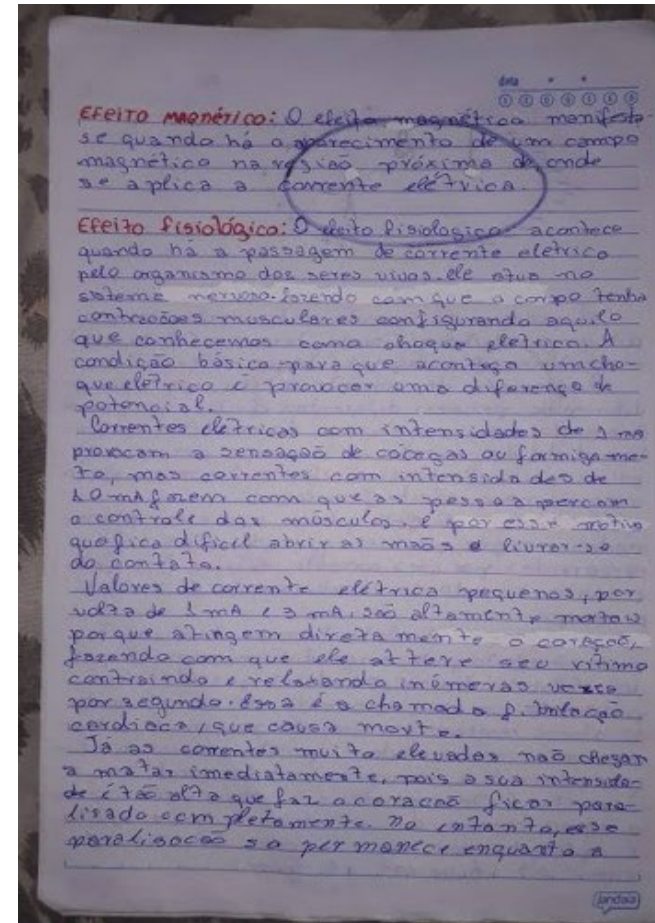 data
EFEITO MAGNÉTICO: O efeito magnético manifesta-
se quando há o aparecimento de um campo
magnético na região próxima de onde
se aplica a corrente elétrica.
Efeito fisiológico: O efeito fisiologico acontece
quando há a passagem de corrente eletrica
pelo organismo dos seres vivos. ele atua no
sistema nervoso. fazendo com que o corpo tenha
contrações musculares configurando aquilo
que conhecemos como choque eletrico. A
condição básica para que aconteça um cho-
que elétrico é provocar uma diferença de
potencial.
Correntes elétricas com intensidades de 1 ma
provocam a sensação de cocegas ou formiga-me-
to, mas correntes com intensidades de
10 mA fazem com que as pessoas percam
o controle dos músculos, é por esse motivo
que fica dificil abrir as mãos e livrar-se
do contato.
Valores de corrente elétrica pequenos, por
volta de 1 mA e 3 mA. são altamente mortais
porque atingem diretamente o coração,
fazendo com que ele altere seu ritimo
contraindo e relaxando inúmeras vezes
por segundo. Essa é a chamada fibrilação
cardiaca, que causa morte.
Já as correntes muito elevadas não chegar
a matar imediatamente, pois a sua intensida-
de é tão alta que faz o coração ficar para-
lisado completamente. no entanto, esse
paralisação so permanece enquanto a
jandaia